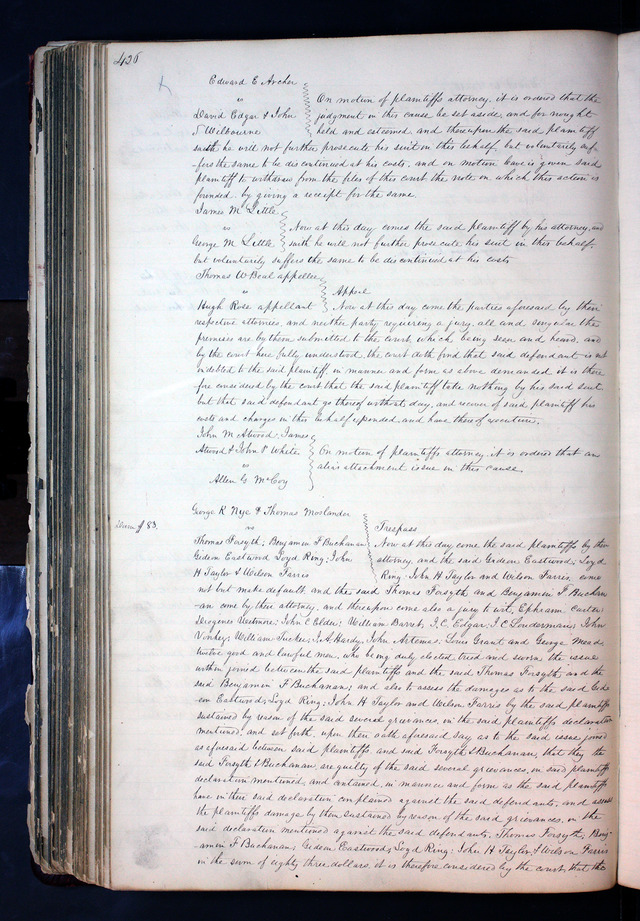 426
Edward E Archer
vs
David Edgar & John
S Melbourne
On motion of plaintiffs attorney, it is ordered that the
judgment in this cause be set aside, and for nought
held and esteemed, and thereupon the said plaintiff
saith he will not further prosecute his suit in this behalf, but voluntarily suf-
fers the same to be discontinued at his costs, and on motion leave is given said
plaintiff to withdraw from the files of this court the note on which this action is
founded by giving a receipt for the same.
James M Little
vs
George M Little
Now at this day comes the said plaintiff by his attorney, and
saith he will not further prosecute his suit in this behalf,
but voluntarily suffers the same to be discontinued at his costs
Thomas W Beal appellee
vs
Hugh Rose appellant
Appeal
Now at this day come the parties aforesaid by their
respective attornies, and neither party requiring a jury, all and singular the
premises are by them submitted to the court, which being seen and heard, and
by the court here fully understood, the court doth find that said defendant is not
indebted to the said plaintiff in manner and form as above demanded, it is there
fore considered by the court that the said plaintiff take nothing by his said suit
but that said defendant go thereof without day, and recover of said plaintiff his
costs and charges in this behalf expended, and have thereof execution.
John M Atwood, James
Atwood & John P White
vs
Allen G McCoy
On motion of plaintiffs attorney it is ordered that an
alias attachment issue in this cause
George R Nye & Thomas Moslander
vs
Thomas Forsyth, Benjamin F Buchanan,
Gideon Eastwood, Loyd Ring, John
H Taylor & Wilson Farris
$83.
Trespass
Now at this day come the said plaintiffs by their
attorney, and the said Gideon Eastwood, Loyd
Ring, John H Taylor and Wilson Farris, come
not but make default, and the said Thomas Forsyth and Benjamin F Buchan
an come by their attorney, and thereupon come also a jury to wit, Ephraim Carter,
Diogenes Wetmore, John C Elder, William Barret, I. C. Edgar, I C Loudermain, John
Vinkey, William Tucker, I. A Hardy, John Artemas, Louis Grant and George Mead
twelve good and lawful men, who being duly elected, tried and sworn the issue
within joined between the said plaintiffs and the said Thomas Forsyth, and the
said Benjamin F Buchanan, and also to assess the damages as to the said Gide
on Eastwood, Loyd Ring, John H Taylor and Wilson Farris by the said plaintiffs
sustained by reason of the said several grievances, in the said plaintiffs declaration
mentioned, and set forth, upon their oath aforesaid say, as to the said issue joined
as aforesaid between said plaintiffs, and said Forsyth & Buchanan, that they the
said Forsyth & Buchanan, are guilty of the said several grievances, in said plaintiffs
declaration mentioned, and contained, in manner and form as the said plaintiffs
have in their said declaration complained against the said defendants, and assess
the plaintiffs damage by them sustained by reason of the said grievances, in the
said declaration mentioned against the said defendants, Thomas Forsyth, Benj-
amin F Buchanan, Gideon Eastwood, Loyd Ring, John H Taylor, & Wilson Farris
in the sum of eighty three dollars, it is therefore considered by the court, that the